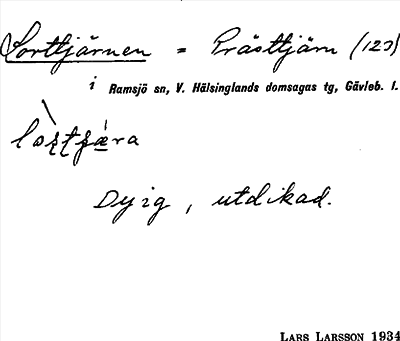 Lorttjärnen = Prästtjärn (123)
i Ramsjö sn, V. Hälsinglands domsagas tg, Gävleb. l.
Dyig, utdikad.
LARS LARSSON 1934